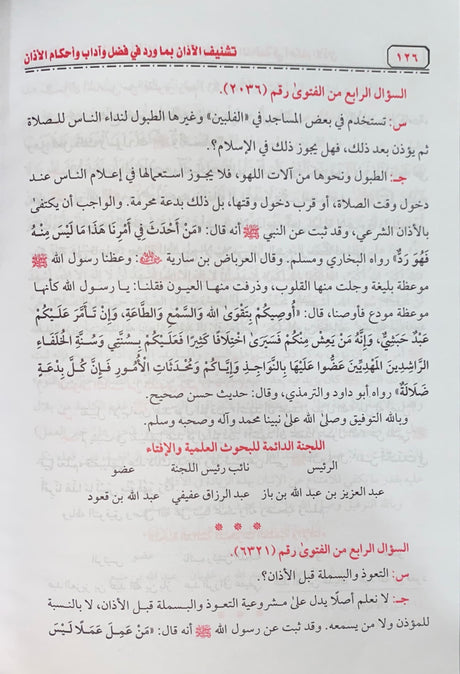 ١٢٦
تشنيف الآذان بما ورد في فضل وآداب وأحكام الأذان
السؤال الرابع من الفتوى رقم (٢٠٣٦).
س: تستخدم في بعض المساجد في «الفلبين» وغيرها الطبول لنداء الناس للصلاة
ثم يؤذن بعد ذلك، فهل يجوز ذلك في الإسلام؟.
جـ: الطبول ونحوها من آلات اللهو، فلا يجوز استعمالها في إعلام الناس عند
دخول وقت الصلاة، أو قرب دخول وقتها، بل ذلك بدعة محرمة. والواجب أن يكتفىٰ
بالأذان الشرعي، وقد ثبت عن النبي ﷺ أنه قال: «مَنْ أَحْدَثَ فِي أَمْرِنَا هَذَا مَا لَيْسَ مِنْهُ
فَهُوَ رَدٌّ» رواه البخاري ومسلم. وقال العرباض بن سارية رضي الله عنه: وعظنا رسول الله ﷺ
موعظة بليغة وجلت منها القلوب، وذرفت منها العيون فقلنا: يا رسول الله كأنها
موعظة مودع فأوصنا، قال: «أُوصِيكُمْ بِتَقْوَى اللهِ وَالسَّمْعِ وَالطَّاعَةِ، وَإِنْ تَأَمَّرَ عَلَيْكُمْ
عَبْدٌ حَبَشِيٌّ، وَإِنَّهُ مَنْ يَعِشْ مِنْكُمْ فَسَيَرَى اخْتِلَافًا كَثِيرًا فَعَلَيْكُمْ بِسُنَّتِي وَسُنَّةِ الْخُلَفَاءِ
الرَّاشِدِينَ الْمَهْدِيِّينَ عَضُّوا عَلَيْهَا بِالنَّوَاجِذِ وَإِيَّاكُمْ وَمُحْدَثَاتِ الْأُمُورِ فَإِنَّ كُلَّ بِدْعَةٍ
ضَلَالَةٌ» رواه أبو داود والترمذي، وقال: حديث حسن صحيح.
وبالله التوفيق وصلىٰ الله علىٰ نبينا محمد وآله وصحبه وسلم.
اللجنة الدائمة للبحوث العلمية والإفتاء
الرئيس نائب رئيس اللجنة عضو
عبد العزيز بن عبد الله بن باز عبد الرزاق عفيفي عبد الله بن قعود
* * *
السؤال الرابع من الفتوىٰ رقم (٦٣٢١).
س: التعوذ والبسملة قبل الأذان؟.
جـ: لا نعلم أصلًا يدل علىٰ مشروعية التعوذ والبسملة قبل الأذان، لا بالنسبة
للمؤذن ولا من يسمعه. وقد ثبت عن رسول الله ﷺ أنه قال: «مَنْ عَمِلَ عَمَلًا لَيْسَ